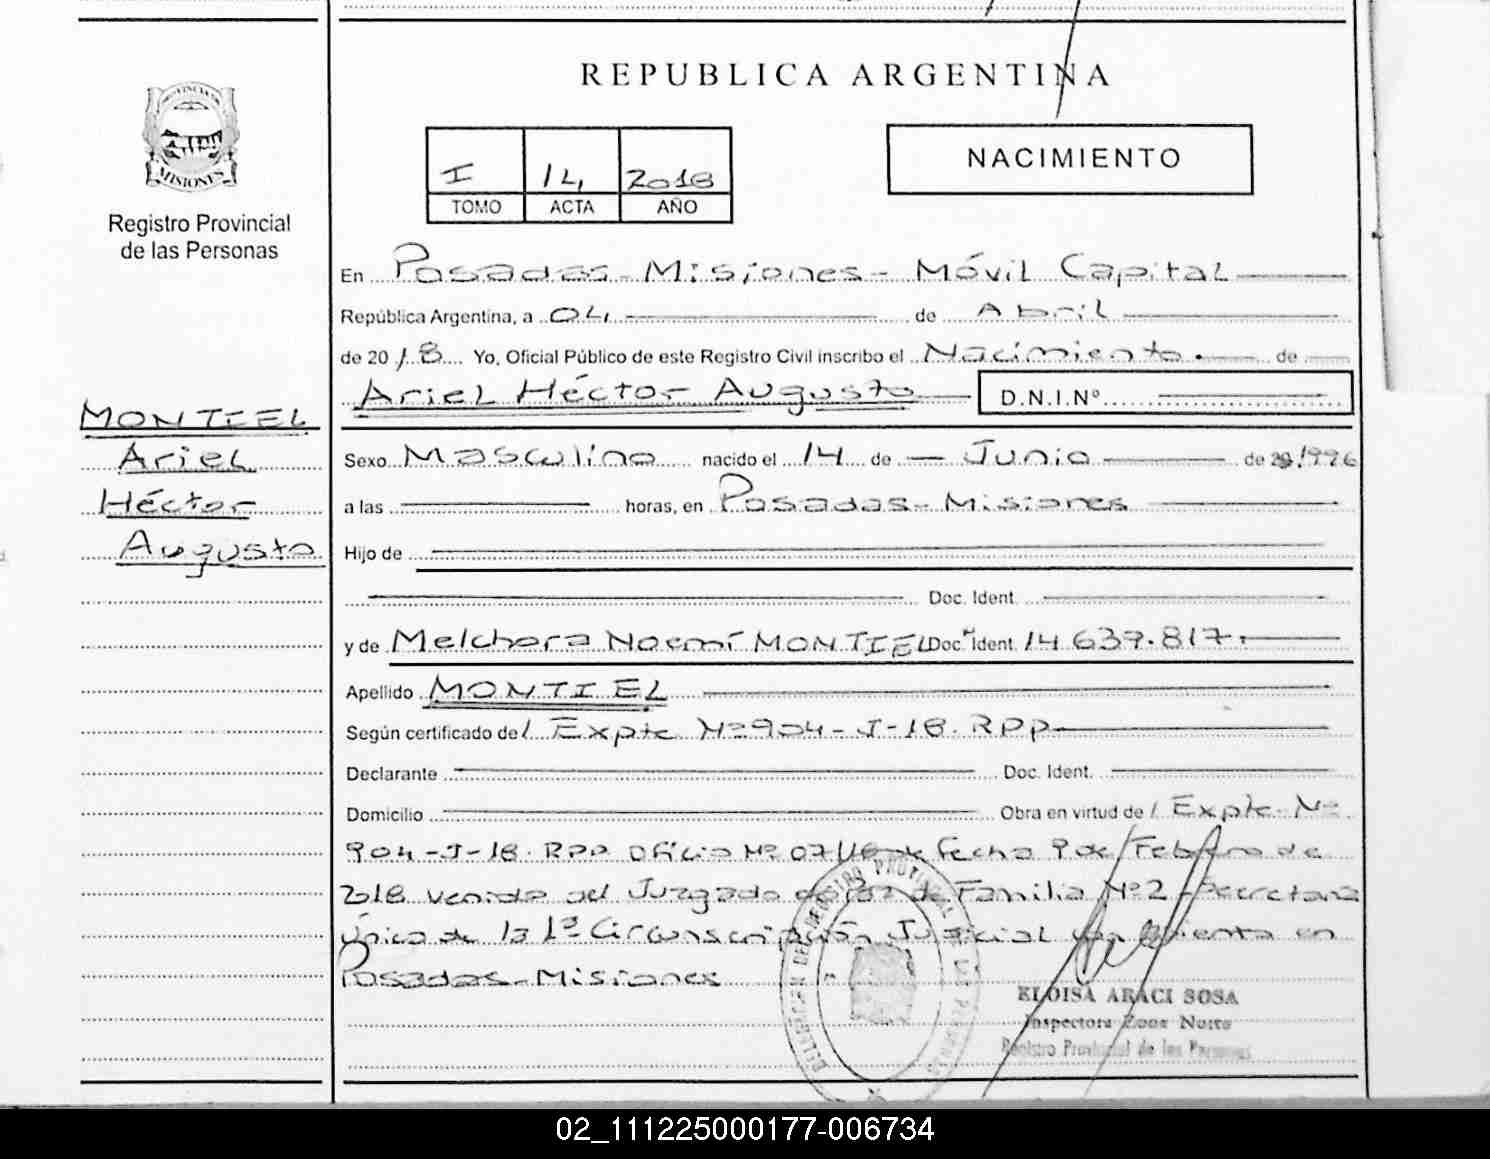 REPUBLICA ARGENTINA
PROVINCIA DE
MISIONES
Registro Provincial
de las Personas
I 14 2018
TOMO ACTA AÑO
NACIMIENTO
En Posadas - Misiones - Móvil Capital
República Argentina, a 04 de Abril
de 2018 Yo, Oficial Público de este Registro Civil inscribo el Nacimiento de
Ariel Héctor Augusto D.N.I.Nº
MONTIEL
Ariel
Héctor
Augusto
Sexo Masculino nacido el 14 de Junio de 1996
a las horas, en Posadas - Misiones
Hijo de
Doc. Ident.
y de Melchora Noemí MONTIEL Doc. Ident. 14.637.817.
Apellido MONTIEL
Según certificado de/ Expte Nº 904-J-18. RPP
Declarante Doc. Ident.
Domicilio Obra en virtud de/ Expte Nº
904-J-18. RPP Oficio Nº 07/18 de fecha 9 de Febrero de
2018 venido del Juzgado de Paz de Familia Nº2 - Secretaria
única de la 1ª Circunscripción Judicial con asiento en
Posadas - Misiones
ELOISA ARACI SOSA
Inspectora Zona Norte
Registro Provincial de las Personas
02_111225000177-006734